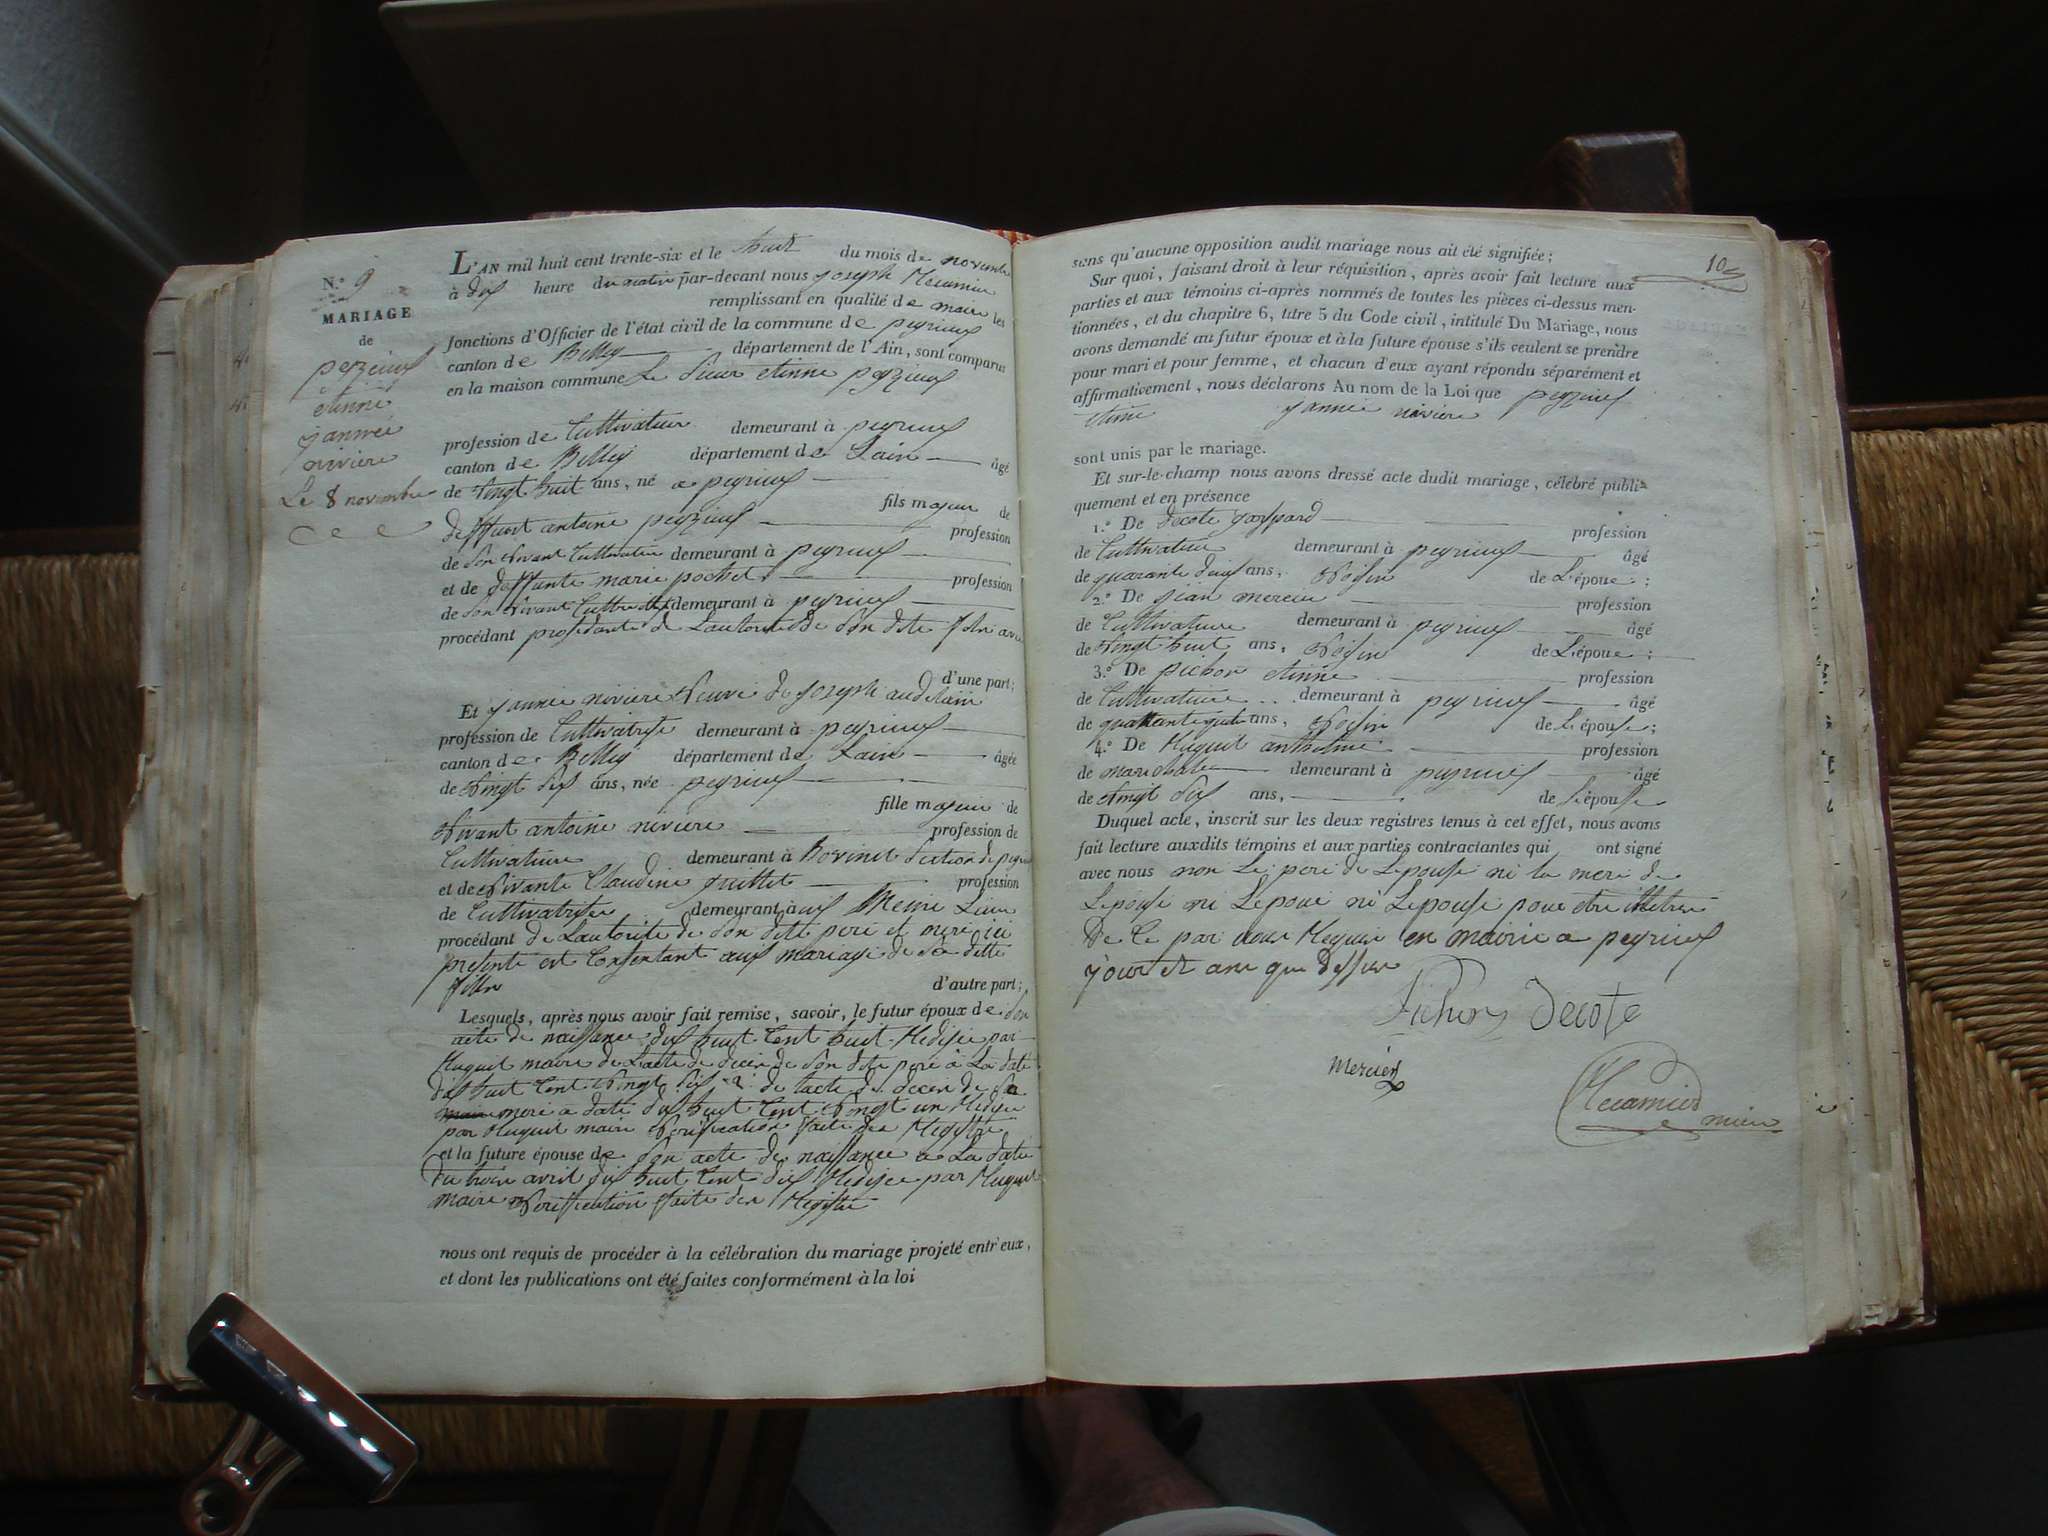 N.° 9
MARIAGE
de
peyzieux
etienne
jannee
riviere
Le 8 novembre
L'AN mil huit cent trente-six et le huit du mois de novembre
à dix heure du matin par-devant nous joseph Recamier
remplissant en qualité de maire les
fonctions d'Officier de l'état civil de la commune de peyrieux
canton de Belley département de l'Ain, sont comparus
en la maison commune Le sieur etinne peyzieux
profession de Cultivateur demeurant à peyrieux
canton de Belley département de Lain âgé
de vingt huit ans, né a peyrieux
fils majeur de
deffunt antoine peyzieux profession
de son vivant Cultivateur demeurant à peyrieux
et de deffunte marie pochet profession
de son vivant demeurant à peyrieux
procédant de Lautorité de son dite
d'une part;
Et jannee riviere veuve de joseph
profession de Cultivatrise demeurant à peyrieux
canton de Belley département de Lain âgée
de vingt six ans, née peyrieux
fille majeur de
vivant antoine riviere profession de
Cultivateure demeurant à Bovinet section de peyrieux
et de vivante Claudine juillet profession
de Cultivatrise demeurant à Meme Lieu
procédant de Lautorité de son ditte pere et mere ici
presente et Consentant aux mariage de sa ditte
fille d'autre part;
Lesquels, après nous avoir fait remise, savoir, le futur époux de son
acte de naissance dix huit Cent huit Redijee par
Huguet maire de Lacte de deces de son dite pere à La date
dix huit Cent vingt six de lacte de deces de sa
mere a date dix huit Cent vingt un Redijee
par Huguet maire verification faite des Registre
et la future épouse de son acte de naissance a La date
du trois avril dix huit Cent dix Redijee par Huguet
maire veriffication faite des Registre
nous ont requis de procéder à la célébration du mariage projeté entr'eux,
et dont les publications ont été faites conformément à la loi
10
sans qu'aucune opposition audit mariage nous ait été signifiée;
Sur quoi, faisant droit à leur réquisition, après avoir fait lecture aux
parties et aux témoins ci-après nommés de toutes les pièces ci-dessus men-
tionnées, et du chapitre 6, titre 5 du Code civil, intitulé Du Mariage, nous
avons demandé au futur époux et à la future épouse s'ils veulent se prendre
pour mari et pour femme, et chacun d'eux ayant répondu séparément et
affirmativement, nous déclarons Au nom de la Loi que peyzieux
etinne jannee riviere
sont unis par le mariage.
Et sur-le-champ nous avons dressé acte dudit mariage, célébré publi-
quement et en présence
1.° De decote gaspard profession
de Cultivateur demeurant à peyrieux âgé
de quarante deux ans, voisin de L'époue;
2.° De jean mercier profession
de Cultivateure demeurant à peyrieux âgé
de vingt huit ans, voisin de L'époue;
3.° De pichon etinne profession
de Cultivateure demeurant à peyrieux âgé
de ans, voisin de l'épouse;
4.° De Huguet anthelme profession
de marechal demeurant à peyrieux âgé
de vingt six ans, de l'épousse
Duquel acte, inscrit sur les deux registres tenus à cet effet, nous avons
fait lecture auxdits témoins et aux parties contractantes qui ont signé
avec nous non Le pere de Lepouse ni la mere de
Lepouse ni Lepoue ni Lepouse pour etre illetree
de Ce par nous Requis en mairie a peyrieux
jour et an que dessus
Pichon Decote
Mercier
Recamier